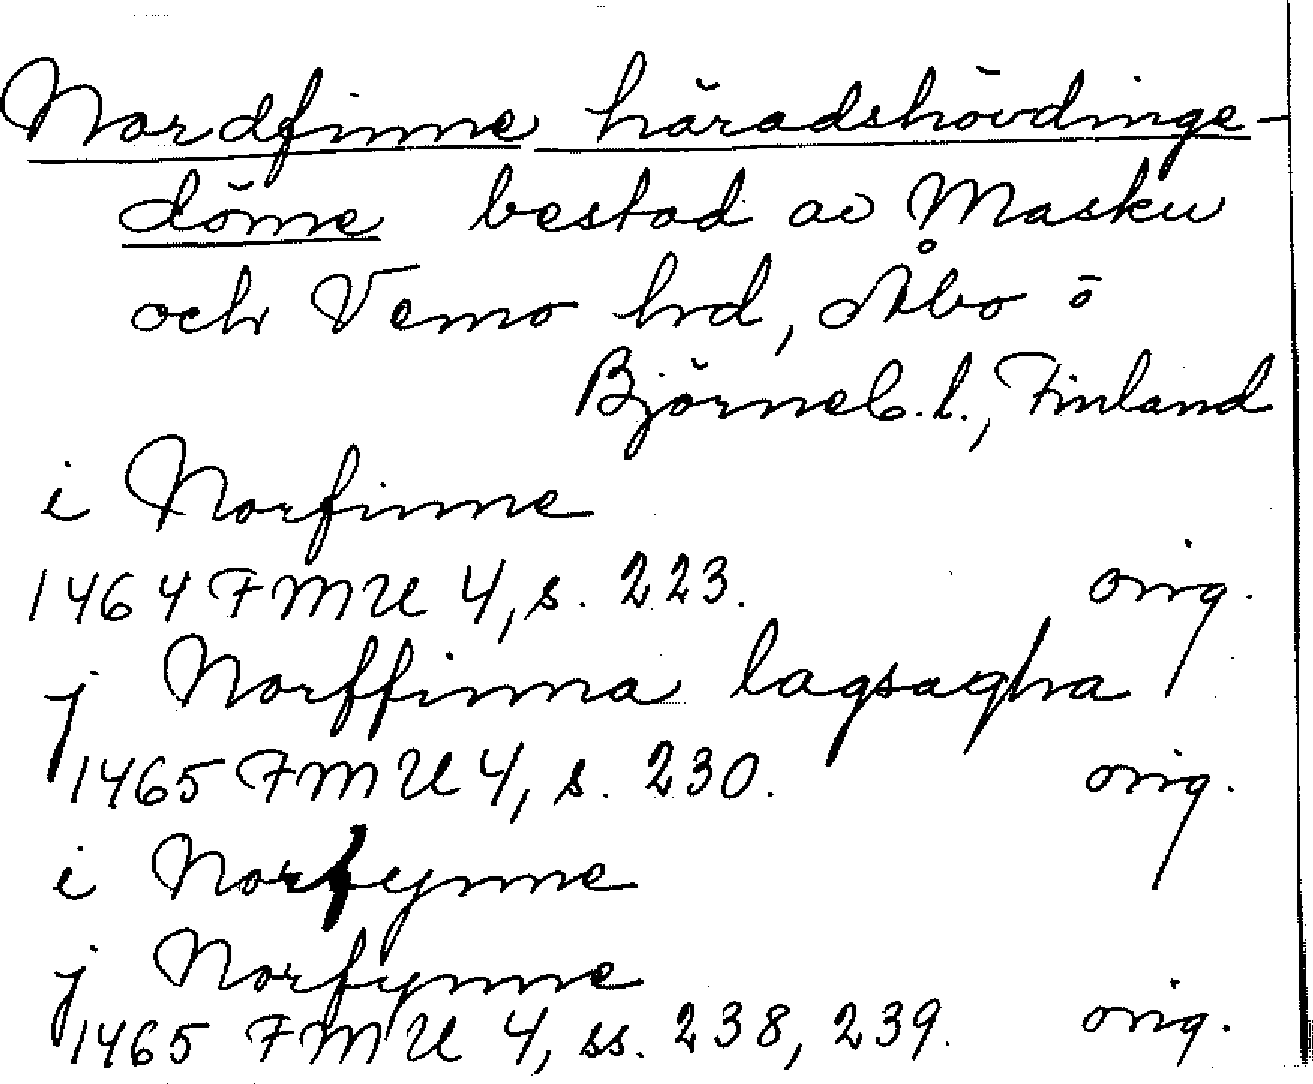 Nordfinne häradshövdinge-
döme bestod av Masku
och Vemo hrd, Åbo o
Björneb. l., Finland
i Norfinne
1464 FMU 4, s. 223. orig.
j Norffinna lagsaghra
1465 FMU 4, s. 230. orig.
i Norfynne
j Norfynne
1465 FMU 4, ss. 238, 239. orig.